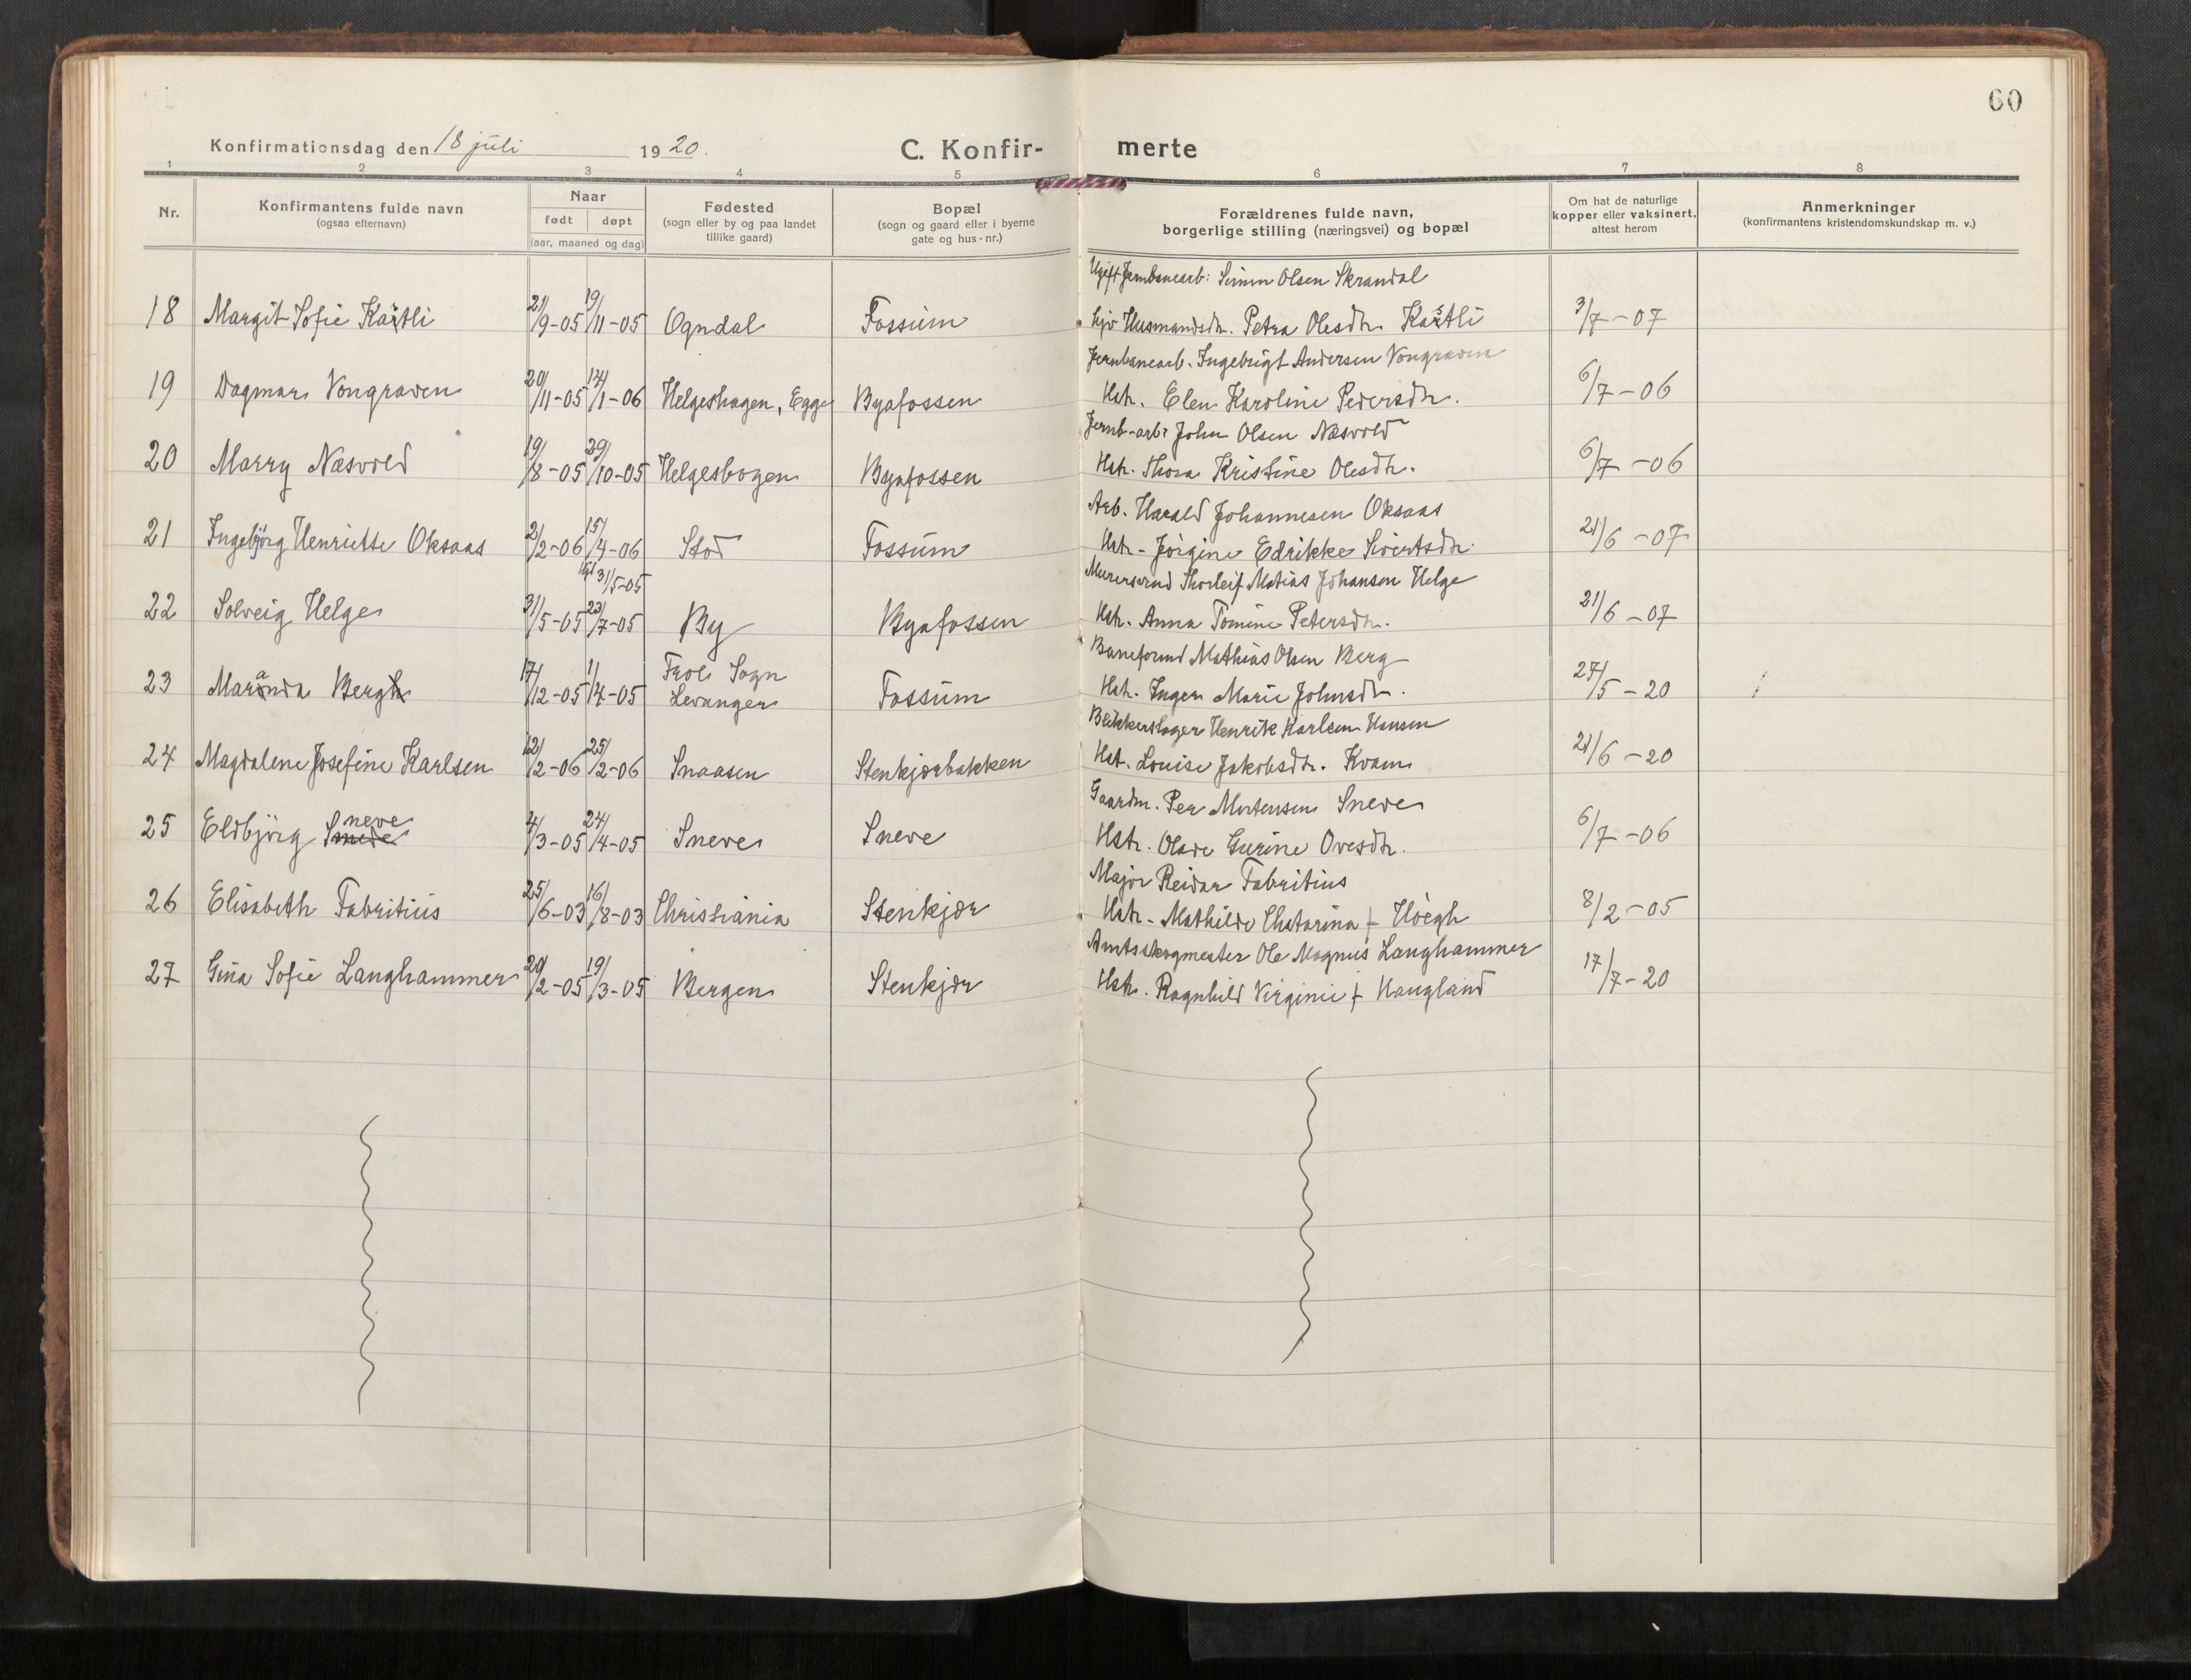 60
Konfirmationsdag den 18 juli 1920.
C. Konfir- merte
1 2 3 4 5 6 7 8
Nr.
Konfirmantens fulde navn
(ogsaa efternavn)
Naar
født døpt
(aar, maaned og dag)
Fødested
(sogn eller by og paa landet
tillike gaard)
Bopæl
(sogn og gaard eller i byerne
gate og hus-nr.)
Forældrenes fulde navn,
borgerlige stilling (næringsvei) og bopæl
Om hat de naturlige
kopper eller vaksinert,
attest herom
Anmerkninger
(konfirmantens kristendomskundskap m. v.)
Ugift Jernbanearb: Simon Olsen Skrandal
18 Margit Sofie Kartli 21/9-05 19/11-05 Ogndal Fossum Husmandsdr. Petra Olesdtr. Kartli 3/7-07
Jernbanearb. Ingebrigt Andersen Vongraven
19 Dagmar Vongraven 20/11-05 14/1-06 Helgeshagen, Egge Byafossen Hstr. Elen Karoline Pedersdtr. 6/7-06
Jernb-arb: John Olsen Næsvold
20 Marry Næsvold 19/8-05 29/10-05 Helgeshagen Byafossen Hstr. Thora Kristine Olesdtr. 6/7-06
Arb. Harald Johannesen Oksaas
21 Ingebjörg Henriette Oksaas 2/2-06 15/4-06 Stod Fossum Hstr. Jörgine Edrikke Sivertsdtr. 21/6-07
31/5-05
Murersvend Thorleif Matias Johansen Helge
22 Solveig Helge 31/5-05 23/7-05 By Byafossen Hstr. Anna Tomine Petersdtr. 21/6-07
Baneformd Mathias Olsen Berg
23 Maranda Bergh 17/12-05 1/4-05 Frol Sogn
Levanger Fossum Hstr. Inger Marie Johnsdtr. 27/5-20
Blikkenslager Henrik Karlsen Hansen
24 Magdalene Josefine Karlsen 12/2-06 25/2-06 Snaasen Stenkjærbakken Hst. Louise Jakobsdtr. Kvam 21/6-20
Gaardm. Per Mortensen Sneve
25 Eldbjörg Sneve 4/3-05 24/4-05 Sneve Sneve Hstr. Olave Gurine Ovesdtr. 6/7-06
Major Reidar Fabritius
26 Elisabeth Fabritius 25/6-03 16/8-03 Christiania Stenkjær Hstr. Mathilde Chatarina f Höegh 8/2-05
Amtsskogmester Ole Magnus Langhammer
27 Gina Sofie Langhammer 20/2-05 19/3-05 Bergen Stenkjær Hstr. Ragnhild Virginie f Haugland 17/7-20